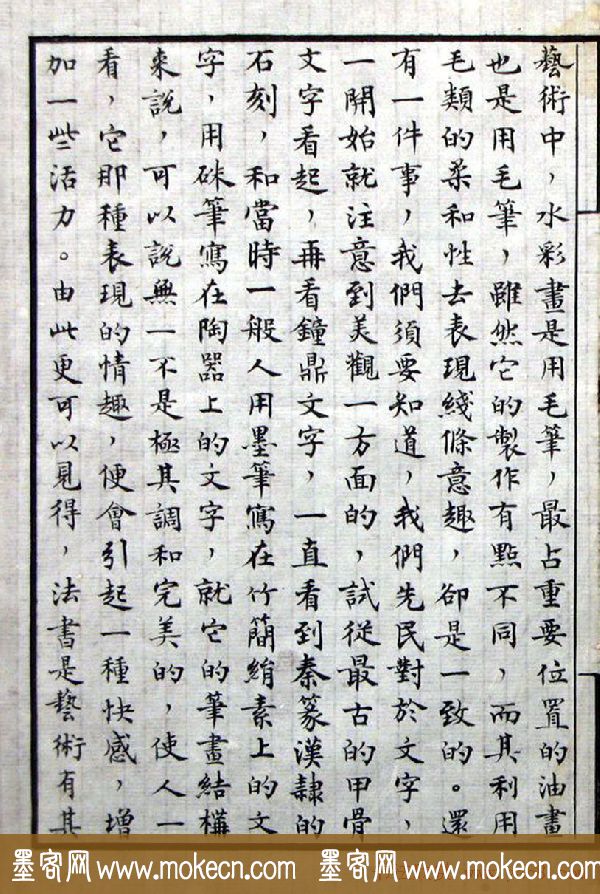 藝術中，水彩畫是用毛筆，最占重要位置的油畫
也是用毛筆，雖然它的製作有點不同，而其利用
毛類的柔和性去表現綫條意趣，卻是一致的。還
有一件事，我們須要知道，我們先民對於文字，
一開始就注意到美觀一方面的，試從最古的甲骨
文字看起，再看鐘鼎文字，一直看到秦篆漢隸的
石刻，和當時一般人用墨筆寫在竹簡絹素上的文
字，用硃筆寫在陶器上的文字，就它的筆畫結構
來說，可以說無一不是極其調和完美的，使人一
看，它那種表現的情趣，便會引起一種快感，增
加一些活力。由此更可以見得，法書是藝術有其
墨客网 www.mokecn.com 墨客网 www.mokecn.com